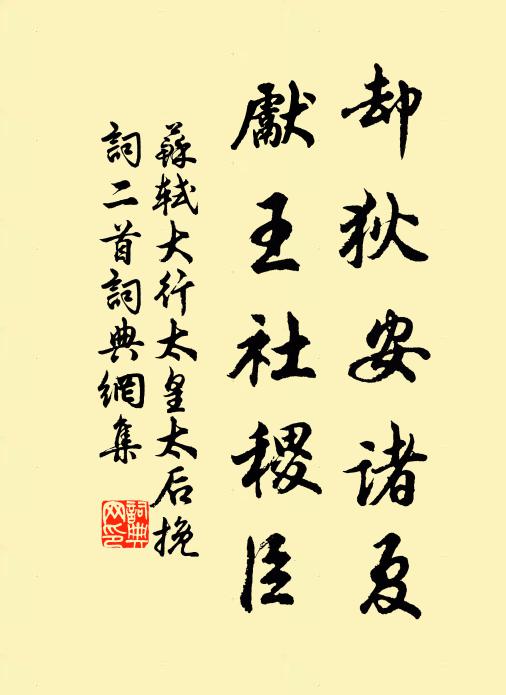 却狄安诸夏
獻王社稷臣
蘇軾大行太皇太后挽
詞二首詞典網集
詞典
网印